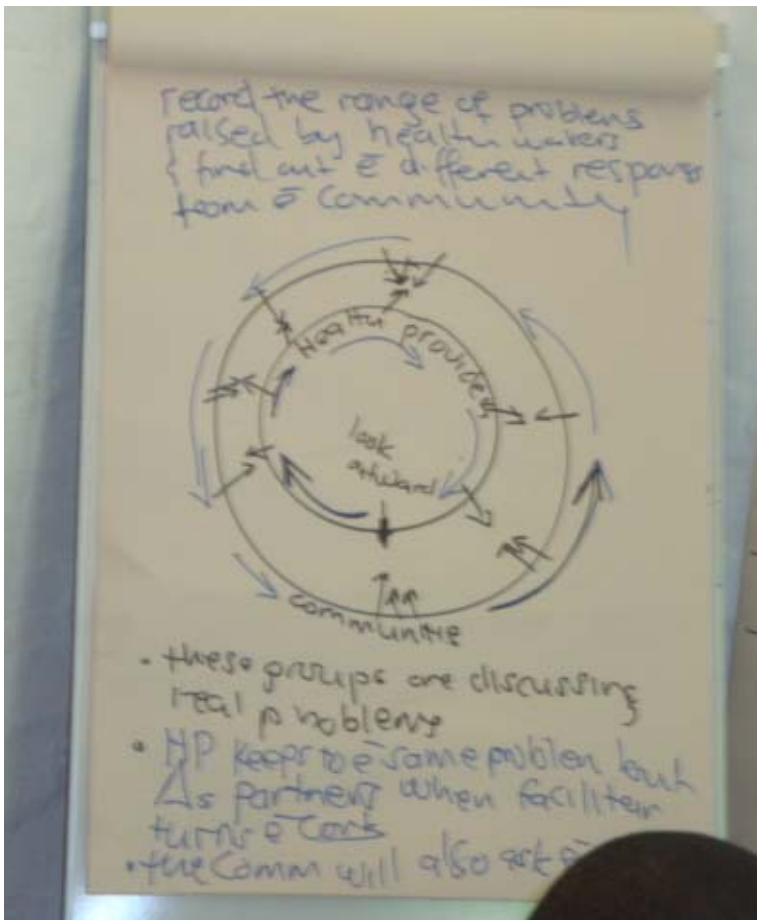 record the range of problems
raised by health workers
& find out ē different respons
from ē Community
Health provides
look
outward
communitie
• these groups are discussing
real problems
• HP keeps to ē same problem but
Δs partners when faciliter
turns ē
• the Comm will also ask ē